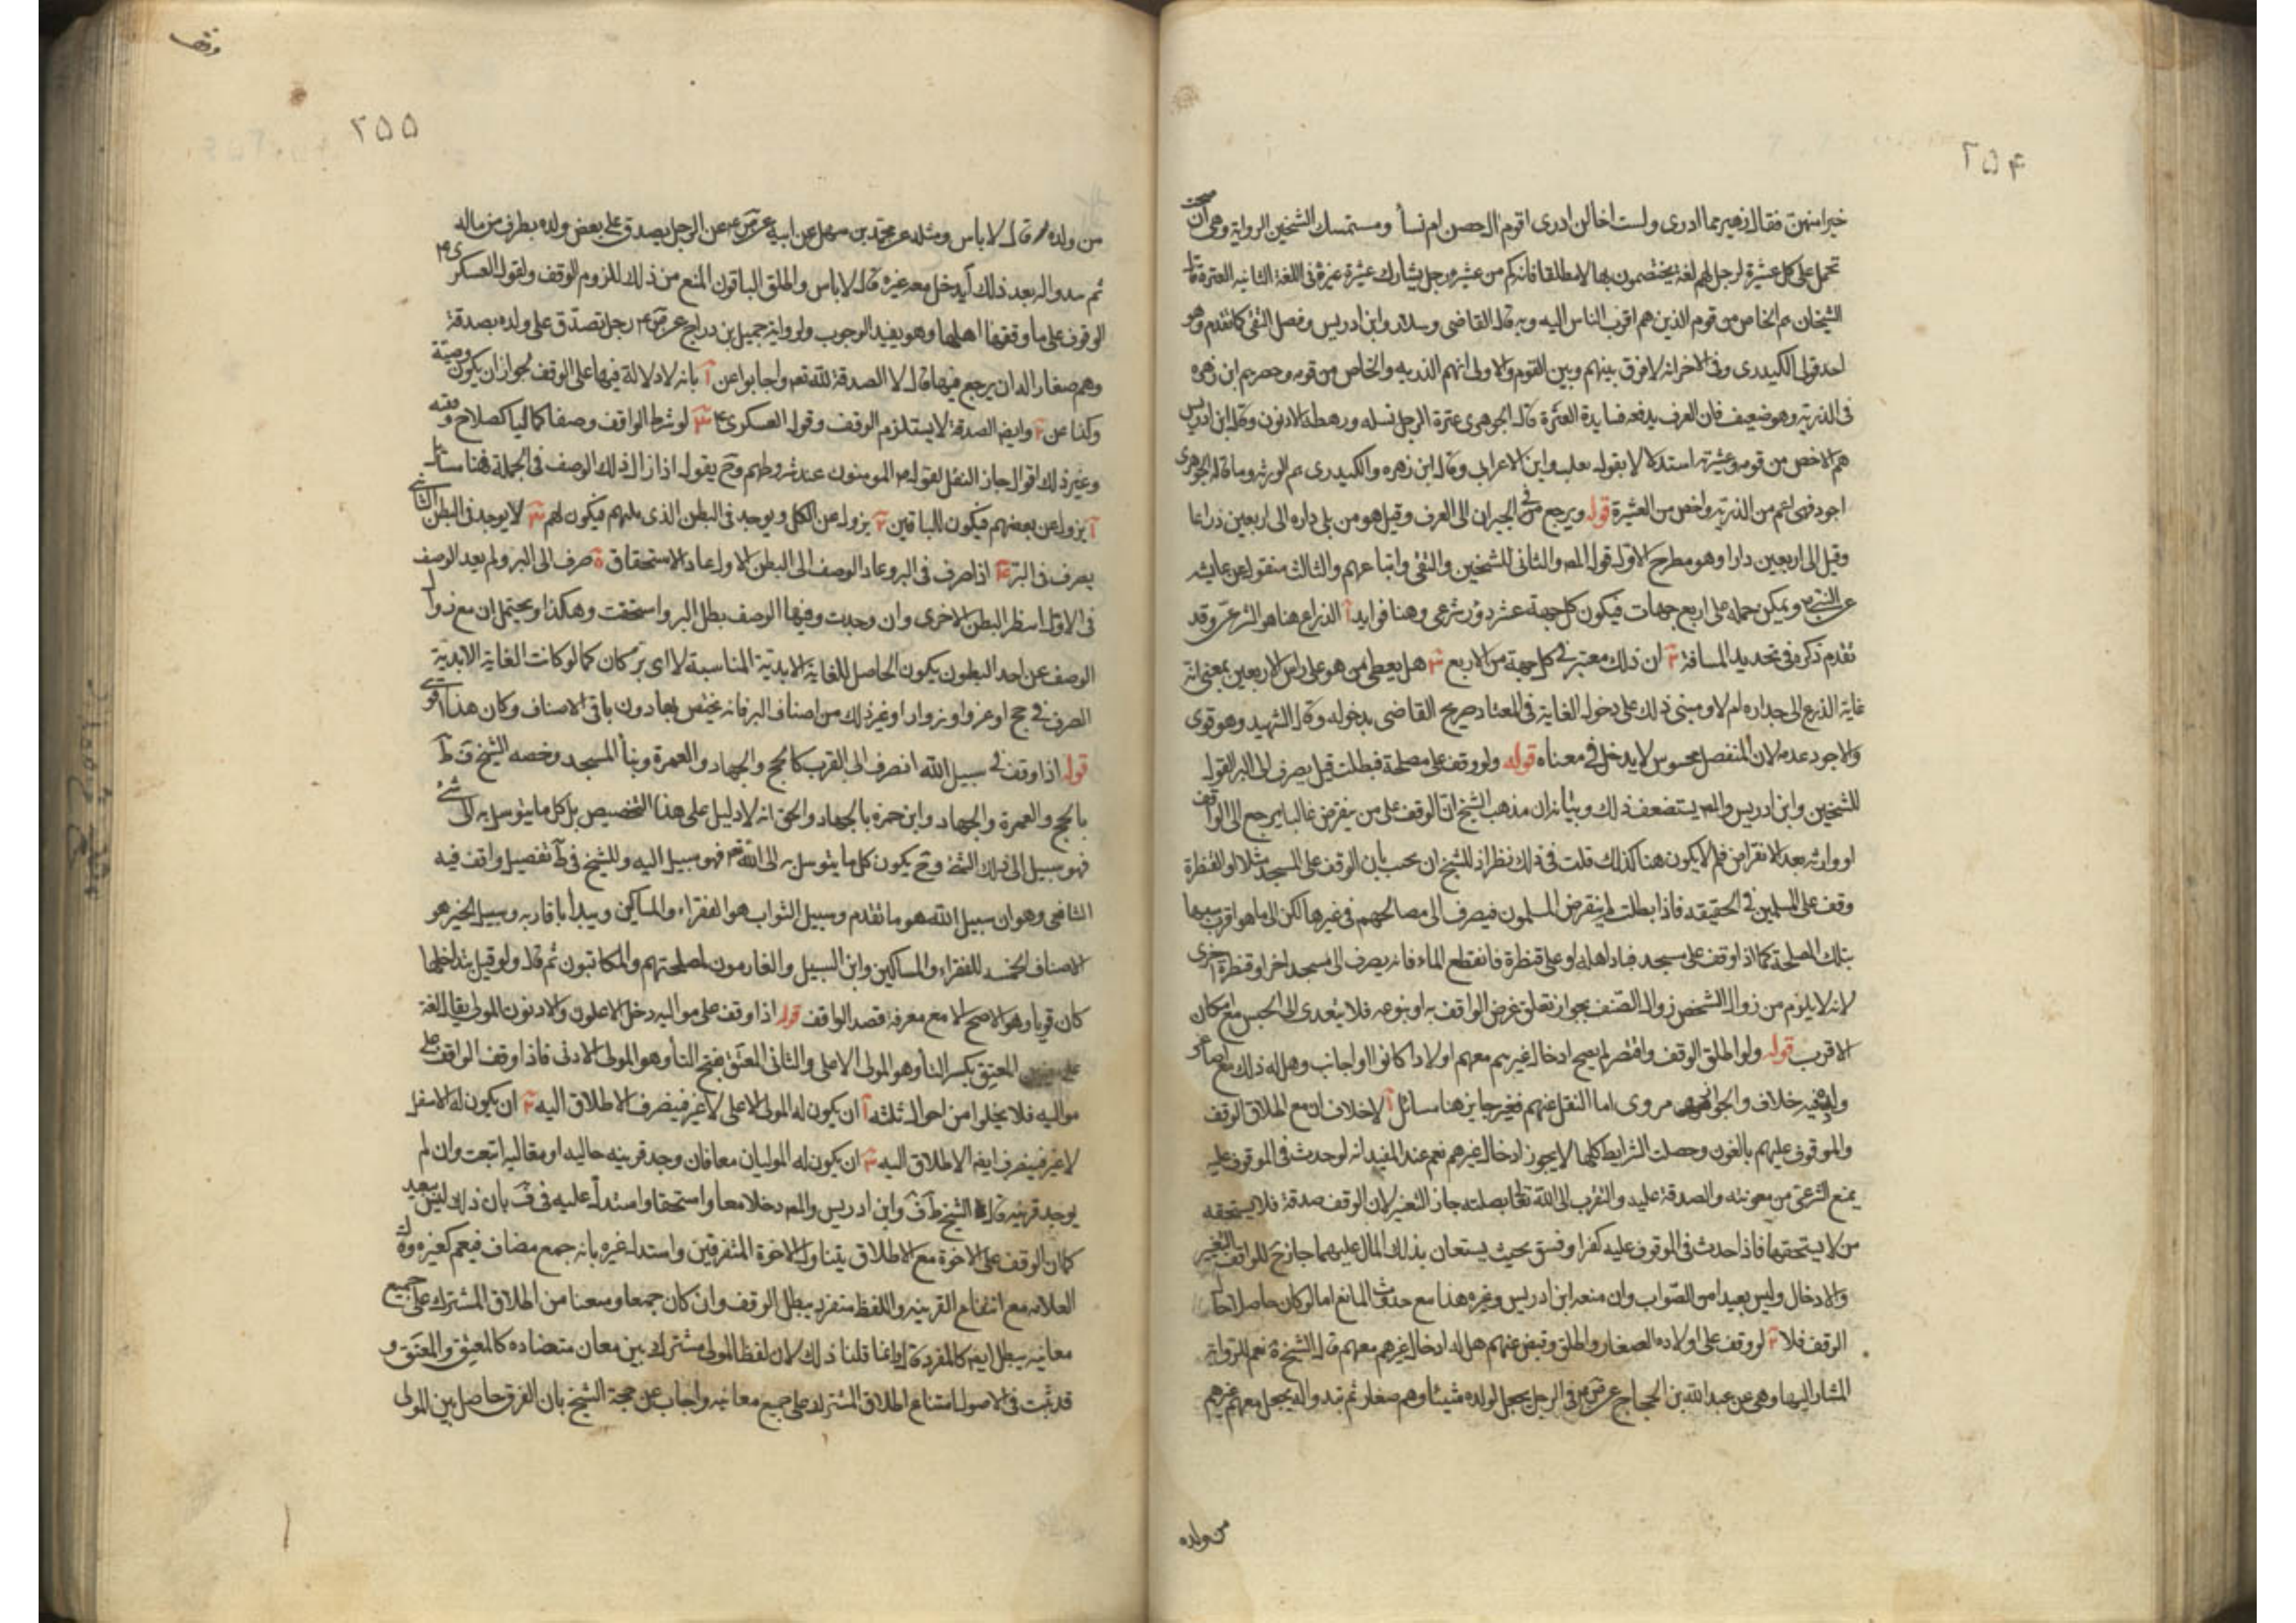 ۲۵۴
خيرا منهن فقال زهير بما ادرى ولست اخال ادرى اقوم ال حصن ام نسأ ومستمسك الشيخين الرواية وهى ان
تحمل على كل عشيرة لرجل لهم لغة يختصمون بها لا مطلقا فانه كم من عشيرة رجل يشارك عشيرة غيره فى اللغة الثانيه العترة قال
الشيخان هم الخاص من قوم الذين هم اقرب الناس اليه وبه قال القاضى وسلار وابن ادريس وفصل التقى كما تقدم وهو
احد قولى الكيدرى وفى الاخر انه لا فرق بينهم وبين القوم والاولى انهم الذريه والخاص من قومه وحصرهم ابن زهره
فى الذرية وهو ضعيف فان العرف يدفعه فايدة العترة قال الجوهرى عترة الرجل نسله ورهطه الادنون وقال ابن ادريس
هم الاخص من قومه وعشيرته استدلالا بقول ثعلب وابن الاعرابى وقال ابن زهره والكيدرى هم الذرية وما قاله الجوهرى
اجود فهى اعم من الذرية واخص من العشيرة قوله ويرجع فى الجيران الى العرف وقيل هو من يلى داره الى اربعين ذراعا
وقيل الى اربعين دارا وهو مطرح الاول قول المص والثانى للشيخين والتقى واتباعهم والثالث منقول عن عايشه
عن النبى ص ويمكن حمله على اربع جهات فيكون كل جهة عشر دور شرعى وهنا فوايد آ الذراع هنا هو الشرعى وقد
تقدم ذكره فى تحديد المسافة ٢ ان ذلك معتبر فى كل جهة من الاربع ٣ هل يعطى من هو على راس الاربعين بمعنى انه
غاية الذرع الى جداره ام لا ومبنى ذلك على دخول الغاية فى المغيا وصريح القاضى بدخوله وقال الشهيد وهو قوى
والاجود عدمه لان المنفصل محسوس لا يدخل فى معناه قوله ولو وقف على مصلحة فبطلت قيل يصرف الى البر القول
للشيخين وابن ادريس والمص يستضعف ذلك وبيانه ان مذهب الشيخ ان الوقف على من ينقرض غالبا يرجع الى الواقف
او وارثه بعد الانقراض فلم لا يكون هنا كذلك قلت فى ذلك نظر اذ للشيخ ان يجيب بان الوقف على المسجد مثلا او القنطرة
وقف على المسلمين فى الحقيقه فاذا بطلت لم ينقرض المسلمون فيصرف الى مصالحهم فى غيرها لكن الى ما هو اقرب سببها
بتلك المصلحة كما اذا وقف على مسجد فباد اهله او على قنطرة فانقطع الماء فانه يصرف الى مسجد اخر او قنطرة اخرى
لانه لا يلزم من زوال الشخص زوال الصنف بجواز تعلق غرض الواقف به او بنوعه فلا يتعدى الى الجنس مع مكان
الاقرب قوله ولو اطلق الوقف واقتصر لم يصح ادخال غيرهم معهم اولادا كانوا او اجانب وهل له ذلك مع اصاغر
ولده فيه خلاف والجواز مروى اما النقل عنهم فغير جايز هنا مسائل آ لا خلاف ان مع اطلاق الوقف
والموقوف عليهم بالغون وحصلت الشرايط كلها لا يجوز ادخال غيرهم نعم عند المفيد انه لو حدث فى الموقوف عليه
يمنع الشرعى من معونته والصدقة عليه والتقرب الى الله تعالى بصلته جاز التغير لان الوقف صدقة فلا يستحقه
من لا يستحقها فاذا حدث فى الموقوف عليه كفر او فسق بحيث يستعان بذلك المال عليهما جاز ح للواقف التغيير
والادخال وليس بعيدا من الصواب وان منعه ابن ادريس وغيره هذا مع حدوث المانع اما لو كان حاصلا حال
الوقف فلا ٢ لو وقف على اولاده الصغار واطلق وقبض عنهم هل له ادخال غيرهم معهم قال الشيخ فى نعم للرواية
المشار اليها وهى عن عبد الله بن الحجاج عن ص ع فى الرجل يجعل لولده شيئا وهم صغار ثم تبدو اله يجعل معهم غيرهم
من ولده
وقف
۲۵۵
من ولده قال لا باس ومثله عن محمد بن سهل عن ابيه عن ص ع عن الرجل يصدق على بعض ولده بطرف من ماله
ثم يبدو اله بعد ذلك ان يدخل معه غيره قال لا باس واطلق الباقون المنع من ذلك للزوم الوقف ولقول العسكرى ع
الوقوف على ما وقفها اهلها وهو يفيد الوجوب ولرواية جميل بن دراج عن ص ع رجل تصدق على ولده بصدقة
وهم صغار اله ان يرجع فيها قال لا الصدقة لله تعم واجابوا عن آ بانه لا دلالة فيها على الوقف لجواز ان يكون وصيتة
وكذا عن ٢ وايض الصدقة لا يستلزم الوقف وقول العسكرى ع ٣ لو شرط الواقف وصفا كماليا كصلاح وفقه
وغير ذلك اقول جاز النقل لقوله ص المومنون عند شروطهم وح يقول اذا زال ذلك الوصف فى الجملة فهنا مسائل
آ يزول عن بعضهم فيكون للباقين ٢ يزول عن الكل ويوجد فى البطن الذى يليهم فيكون لهم ٣ لا يوجد فى البطن الثانى
يصرف فى البر ٤ اذا صرف فى البر وعاد الوصف الى البطن الاول عاد الاستحقاق ٥ صرف الى البر ولم يعد الوصف
فى الاول انتظر البطن الاخرى وان وجدت وفيها الوصف بطل البر واستحقت وهكذا ويحتمل ان مع زوال
الوصف عن احد البطون يكون الحاصل للغاية الابدية المناسبة لا اى بر كان كما لو كانت الغاية الابدية
الصرف فى حج او غزو او زوار او غير ذلك من اصناف البر فانه يختص بها دون باقى الاصناف وكان هذا اقوى
قوله اذا وقف فى سبيل الله انصرف الى القرب كالحج والجهاد والعمرة وبنأ المسجد وخصه الشيخ ف ط
بالحج والعمرة والجهاد وابن حمزه بالجهاد والحق انه لا دليل على هذا التخصيص بل كل ما يتوسل به الى الشئ
فهو سبيل الى ذلك الشئ وح يكون كل ما يتوسل به الى الله تعم فهو سبيل اليه وللشيخ فى ط تفصيل وافق فيه
الشافعى وهو ان سبيل الله هو ما تقدم وسبيل الثواب هو الفقراء والمساكين ويبدأ باقاربه وسبيل الخير هو
الاصناف الخمسه للفقراء والمساكين وابن السبيل والغارمون لمصلحتهم والمكاتبون ثم قال ولو قيل بتداخلها
كان قويا وهو الاصح الا مع معرفة قصد الواقف قوله اذا وقف على مواليه دخل الاعلون والادنون المولى يقال لغة
على المعتق بكسر التأ وهو المولى الاعلى والثانى المعتق بفتح التأ وهو المولى الادنى فاذا وقف الواقف على
مواليه فلا يخلوا من احوال ثلثه آ ان يكون له المولى الاعلى لا غير فينصرف الاطلاق اليه ٢ ان يكون له الاسفل
لا غير فينصرف ايض الاطلاق اليه ٣ ان يكون له الموليان معا فان وجد قرينه حاليه او مقاليه اتبعت وان لم
يوجد قرينه قال الشيخ ط ف وابن ادريس والمص دخلا معا واستحقا واستدل عليه فى ف بان ذلك ليس ببعيد
كما ان الوقف على الاخوة مع الاطلاق يتناول الاخوة المتفرقين واستدل غيره بانه جمع مضاف فيعم كغيره وقال
العلامه مع انتفاع القرينه واللفظ منفرد يبطل الوقف وان كان جمعا ومنعنا من اطلاق المشترك على جميع
معانيه يبطل ايض كالمفرد قال وانما قلنا ذلك لان لفظ المولى مشترك بين معان متضاده كالمعتِق والمعتَق و
قد ثبت فى الاصول امتناع اطلاق المشترك على جميع معانيه واجاب عن حجة الشيخ بان الفرق حاصل بين المولى